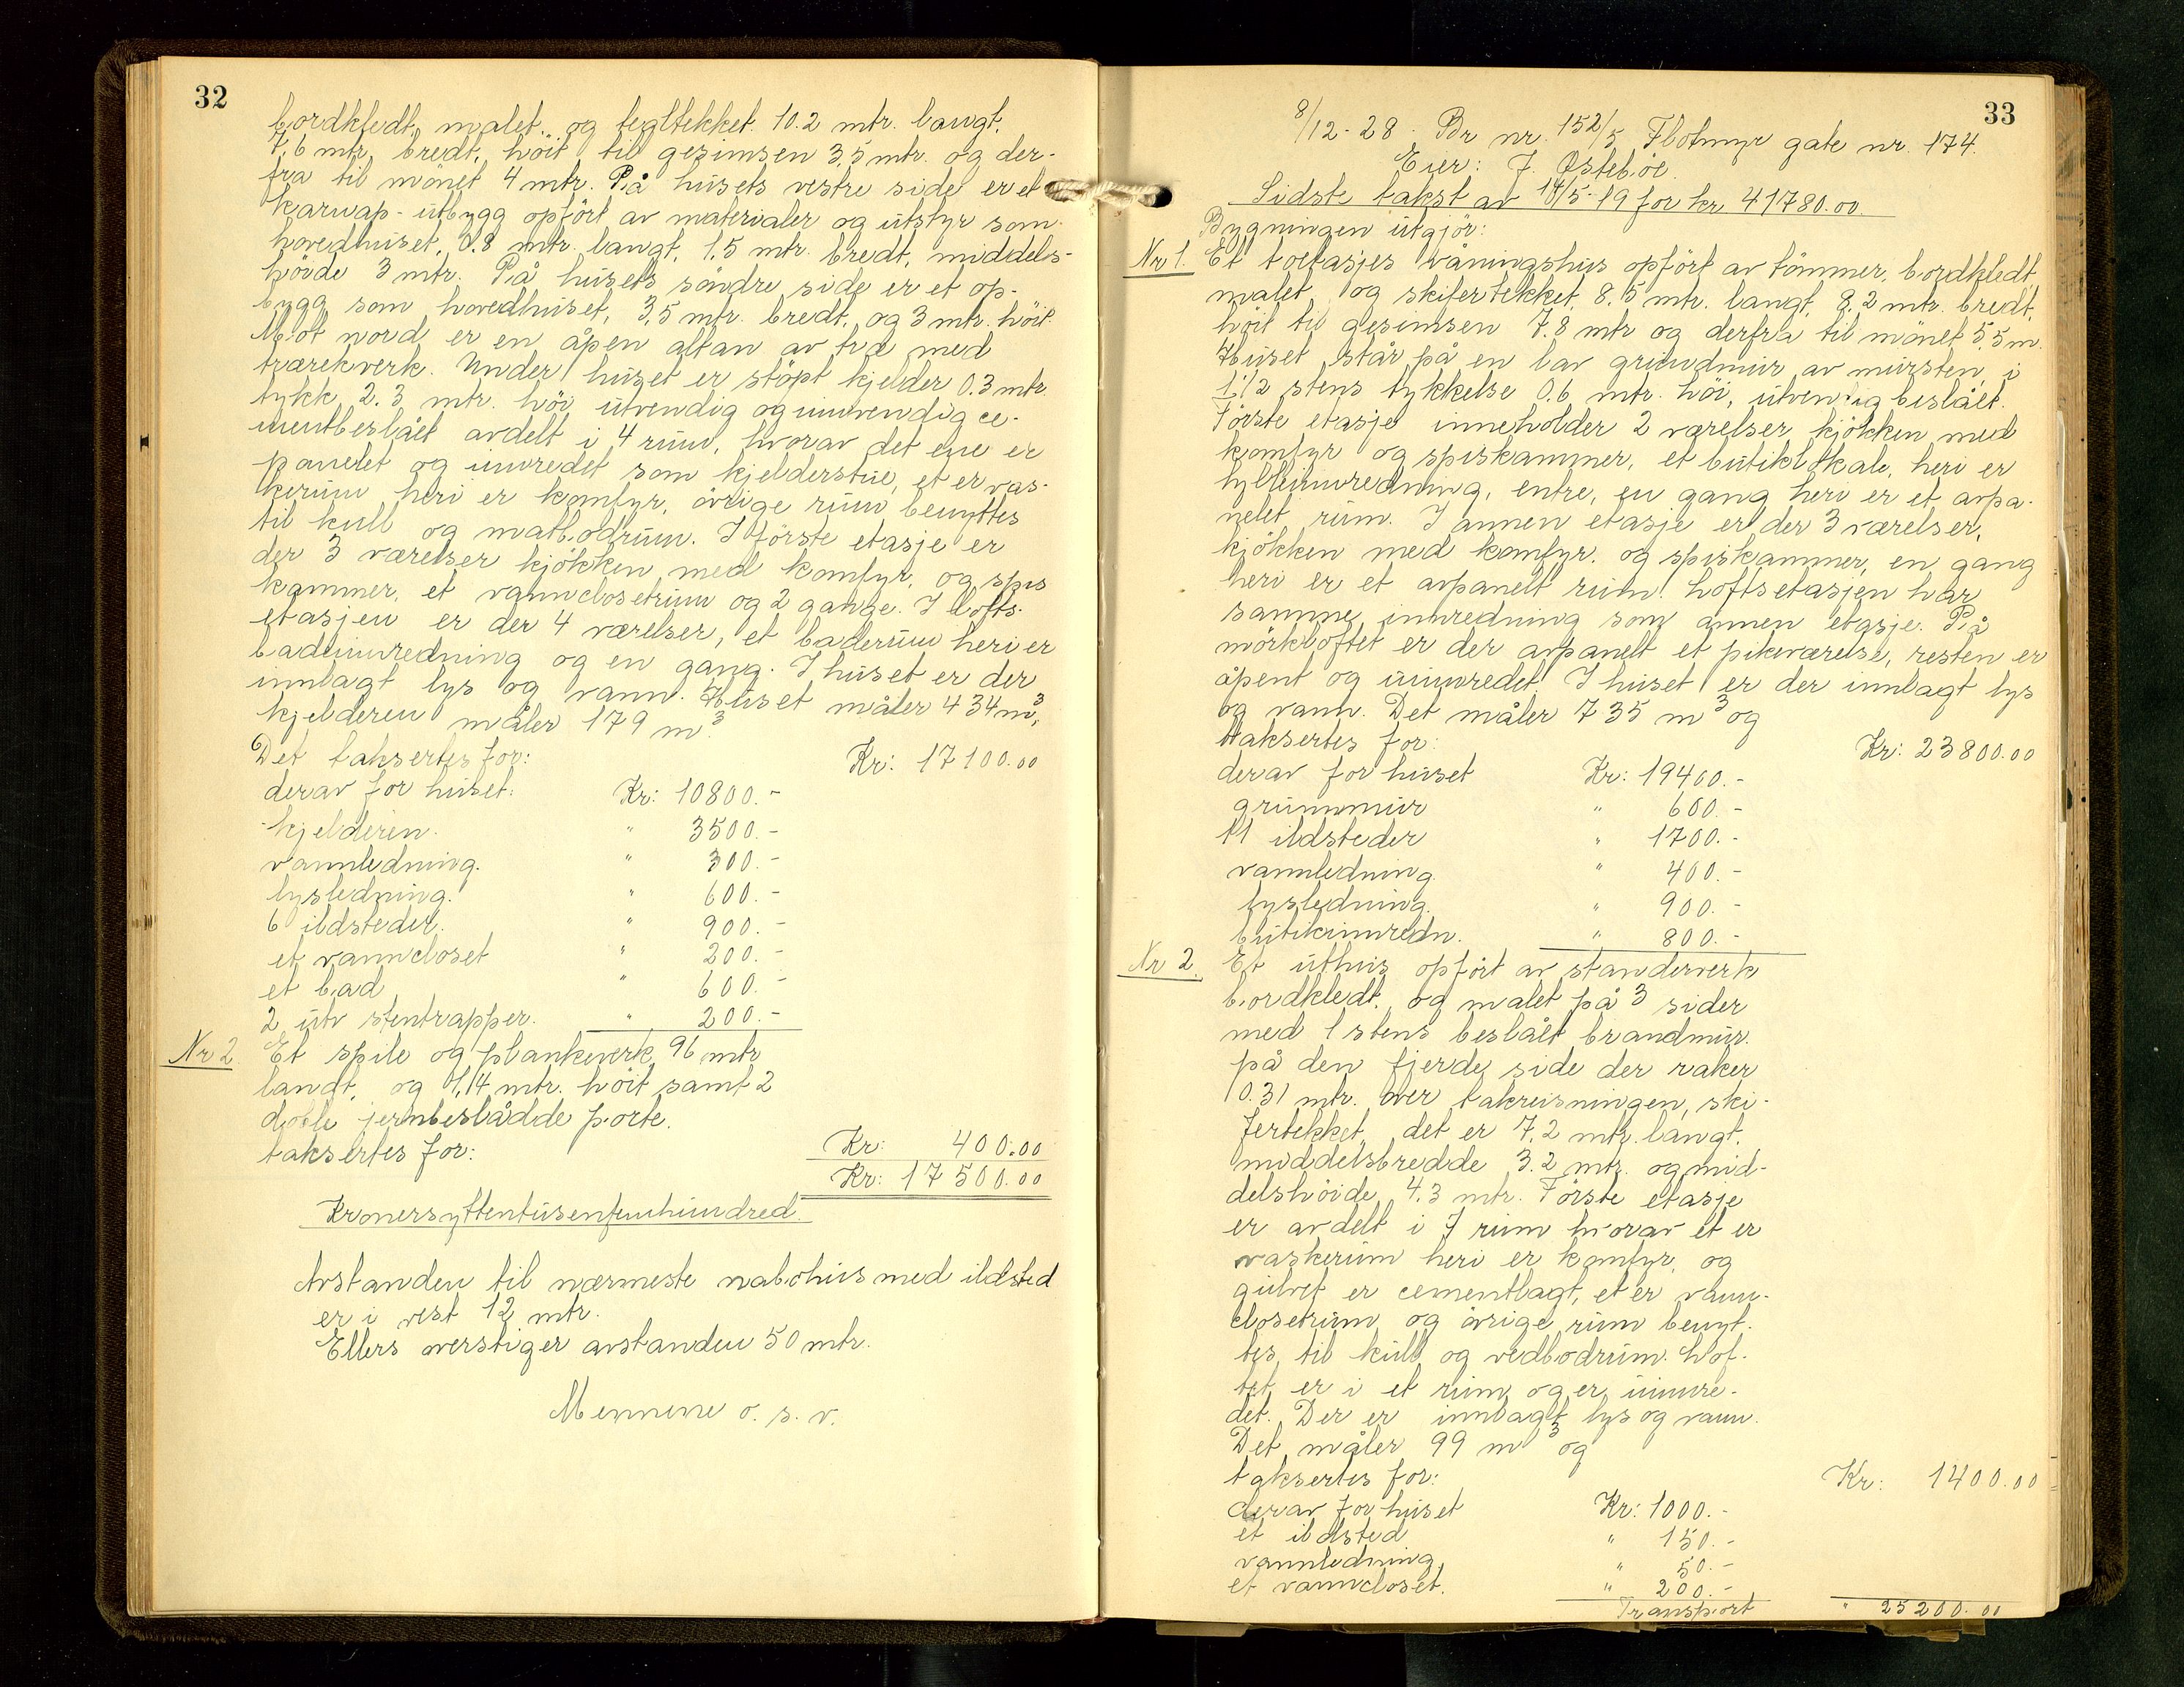 32
bordkledt, malet og tegltekket. 10.2 mtr. langt,
7,6 mtr. bredt, höit til gesimsen 3,5 mtr. og der-
fra til mönet 4 mtr. På husets vestre side er et
karnap-utbygg opfört av materialer og utstyr som
hovedhuset, 0.8 mtr. langt, 1,5 mtr. bredt, middels-
höide 3 mtr. På husets söndre side er et op-
bygg som hovedhuset, 3,5 mtr. bredt, og 3 mtr. höit.
Mot nord er en åpen altan av træ med
trærekverk. Under huset er stöpt kjelder 0.3 mtr.
tykk 2.3 mtr. höi utvendig og innvendig ce-
mentbeslået avdelt i 4 rum, hvorav det ene er
panelet og innredet som kjelderstue, et er vas-
kerum heri er komfyr, övrige rum benyttes
til kull og matbodrum. I förste etasje er
der 3 værelser kjökken med komfyr, og spis
kammer, et vannclosetrum og 2 gange. I lofts-
etasjen er der 4 værelser, et baderum heri er
badeinnredning og en gang. I huset er der
innlagt lys og vann. Huset måler 434 m³,
kjelderen måler 179 m³.
Det takseres for: Kr: 17100.00
derav for huset: Kr: 10800.-
kjelderen. " 3500.-
vannledning. " 300.-
lysledning. " 600.-
6 ildsteder. " 900.-
et vanncloset " 200.-
et bad " 600.-
2 utv stentrapper. " 200.-
Nr 2. Et spile og plankeverk, 96 mtr
langt, og 1,14 mtr. höit samt 2
doble jernbeslådde porte.
taksertes for: Kr: 400.00
Kr: 17500.00
Kronersyttentusenfemhundred.
Avstanden til nærmeste nabohus med ildsted
er i vest 12 mtr.
Ellers overstiger avstanden 50 mtr.
Mennene o. s. v.
33
8/12-28. Br nr. 152/5 Flotmyr gate nr. 174.
Eier: J. Östeböe.
Sidste takst av 14/5-19 for kr 41780.00.
Bygningen utgjör:
Nr 1. Et toetasjes våningshus opfört av tömmer, bordkledt,
malet og skifertekket, 8,5 mtr. langt, 8,2 mtr. bredt,
höit til gesimsen 7,8 mtr og derfra til mönet 5,5 m.
Huset står på en lav grundmur av mursten i
1 1/2 stens tykkelse 0.6 mtr. höi, utvendig beslået.
Förste etasje inneholder 2 værelser kjökken med
komfyr og spiskammer, et butiklokale, heri er
hylleinnredning, entre, en gang heri er et avpa-
nelet rum. I annen etasje er der 3 værelser,
kjökken med komfyr. og spiskammer, en gang
heri er et avpanelt rum. Loftsetasjen har
samme innredning som annen etasje. På
mörkloftet er der avpanelt et pikeværelse, resten er
åpent og uinnredet. I huset er der innlagt lys
og vann. Det måler 735 m³ og
taksertes for: Kr: 23800.00
derav for huset Kr: 19400.-
grunnmur " 600.-
11 ildsteder " 1700.-
vannledning. " 400.-
lysledning. " 900.-
butikinnredn. " 800.-
Nr 2. Et uthus opfört av standerverk
bordkledt, og malet på 3 sider
med 1 stens beslået brandmur.
på den fjerde side der raker
0.31 mtr. over takreisningen, ski-
fertekket, det er 7,2 mtr. langt,
middelsbredde 3.2 mtr. og mid-
delshöide 4.3 mtr. Förste etasje
er avdelt i 7 rum hvorav et er
vaskerum heri er komfyr, og
gulvet er cementlagt, et er vann-
closetrum, og övrige rum benyt-
tes til kull og vedbodrum. Lof-
tet er i et rum og er uinnre-
det. Der er innlagt lys og vann.
Det måler 99 m³ og
taksertes for: Kr: 1400.00
derav for huset Kr: 1000.-
et ildsted " 150.-
vannledning, " 50.-
et vanncloset. " 200.-
Transport " 25200.00